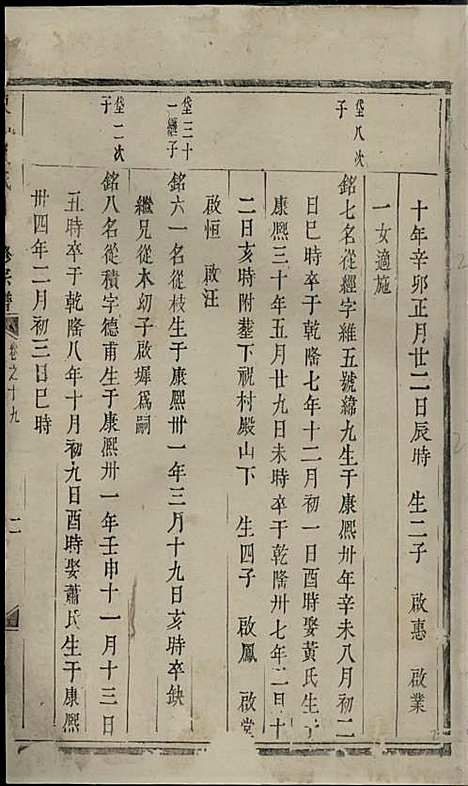 十年辛卯正月廿二日辰時 生二子 啟惠 啟業
一女適施
垈八次子
銘七名從經字維五號緯九生于康熙卅年辛未八月初二
日巳時卒于乾隆七年十二月初一日酉時娶黃氏生于
康熙三十年五月廿九日未時卒于乾隆卅七年二月十
二日亥時附塟下祝村殿山下 生四子 啟鳳 啟堂
啟恒 啟汪
垈三十一繼子
銘六一名從枝生于康熙卅一年三月十九日亥時卒缺
繼兄從木幼子啟墀為嗣
垈二次子
銘八名從積字德甫生于康熙卅一年壬申十一月十三日
丑時卒于乾隆八年十月初九日酉時娶蕭氏生于康熙
卅四年二月初三日巳時
宗譜 卷之十九